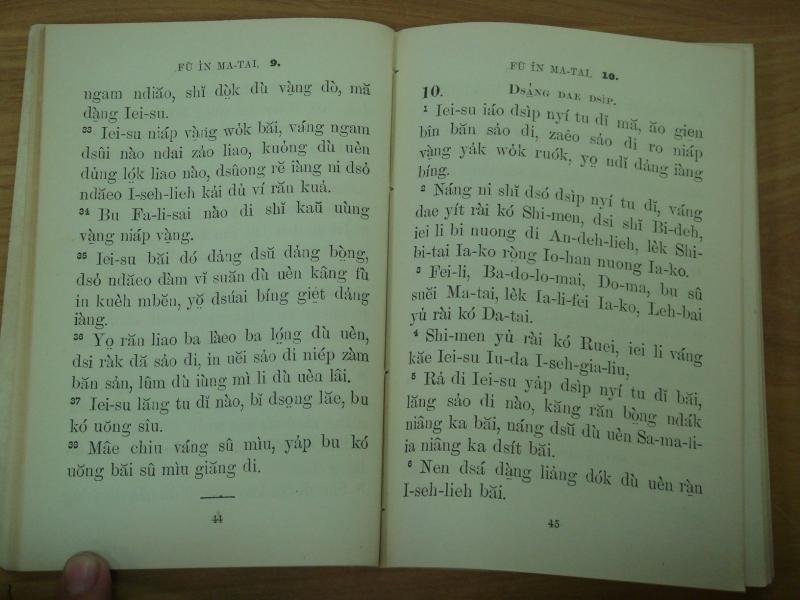 FŪ ÍN MA-TAI, 9.
ngam ndiăo, shĭ dŏ̤k dù vạ̀ng dò, mă
dạ̀ng Iei-su.
33 Iei-su niáp vạ̀ng wók băi, váng ngam
dsûi nào ndai zảo liao, kuỏng dù uèn
dủng lọ́k liao nào, dsûong rĕ iàng ni dsó
ndăeo I-seh-lieh kải dủ ví răn kuả.
34 Bu Fa-li-sai nào di shĭ kaŭ uùng
vạ̀ng niáp vạ̀ng.
35 Iei-su băi dó dảng dsŭ dảng bọ̀ng,
dsó ndăeo dàm vĭ suăn dù uèn kâng fù
in kuèh mbĕn, yŏ̤ dsúai bíng giẹt dảng
iàng.
36 Yọ răn liao ba làeo ba lọ́ng dù uèn,
dsi ràk dă sảo di, in uĕi sảo di niép zàm
băn sản, lûm dù iùng mì li dù uèn lâi.
37 Iei-su lăng tu dĭ nào, bĭ dsọng lăe, bu
kó uŏng sîu.
38 Mâe chiu váng sû mìu, yảp bu kó
uŏng băi sû mìu giăng di.
44
FŪ ÍN MA-TAI, 10.
10. DSẠ̉NG DAE DSÌP.
1 Iei-su iáo dsìp nyí tu dĭ mă, ăo gien
bîn băn sảo di, zaêo sảo di ro niáp
vạ̀ng yảk wók ruók, yọ ndĭ dảng iàng
bíng.
2 Náng ni shĭ dsó dsìp nyí tu dĭ, váng
dae yít rài kó Shi-men, dsi shĭ Bi-deh,
iei li bi nuong di An-deh-lieh, lèk Shi-
bi-tai Ia-ko rọ̀ng Io-han nuong Ia-ko.
3 Fei-li, Ba-do-lo-mai, Do-ma, bu sû
suĕi Ma-tai, lèk Ia-li-fei Ia-ko, Leh-bai
yủ rài kó Da-tai.
4 Shi-men yủ rài kó Ruei, iei li váng
kăe Iei-su Iu-da I-seh-gia-liu,
5 Rả di Iei-su yảp dsìp nyí tu dĭ băi,
lăng sảo di nào, kăng răn bọ̀ng ndák
niâng ka băi, náng dsŭ dù uèn Sa-ma-li-
ia niâng ka dsít băi.
6 Nen dsá dạ̀ng liảng dók dù uèn ràn
I-seh-lieh băi.
45